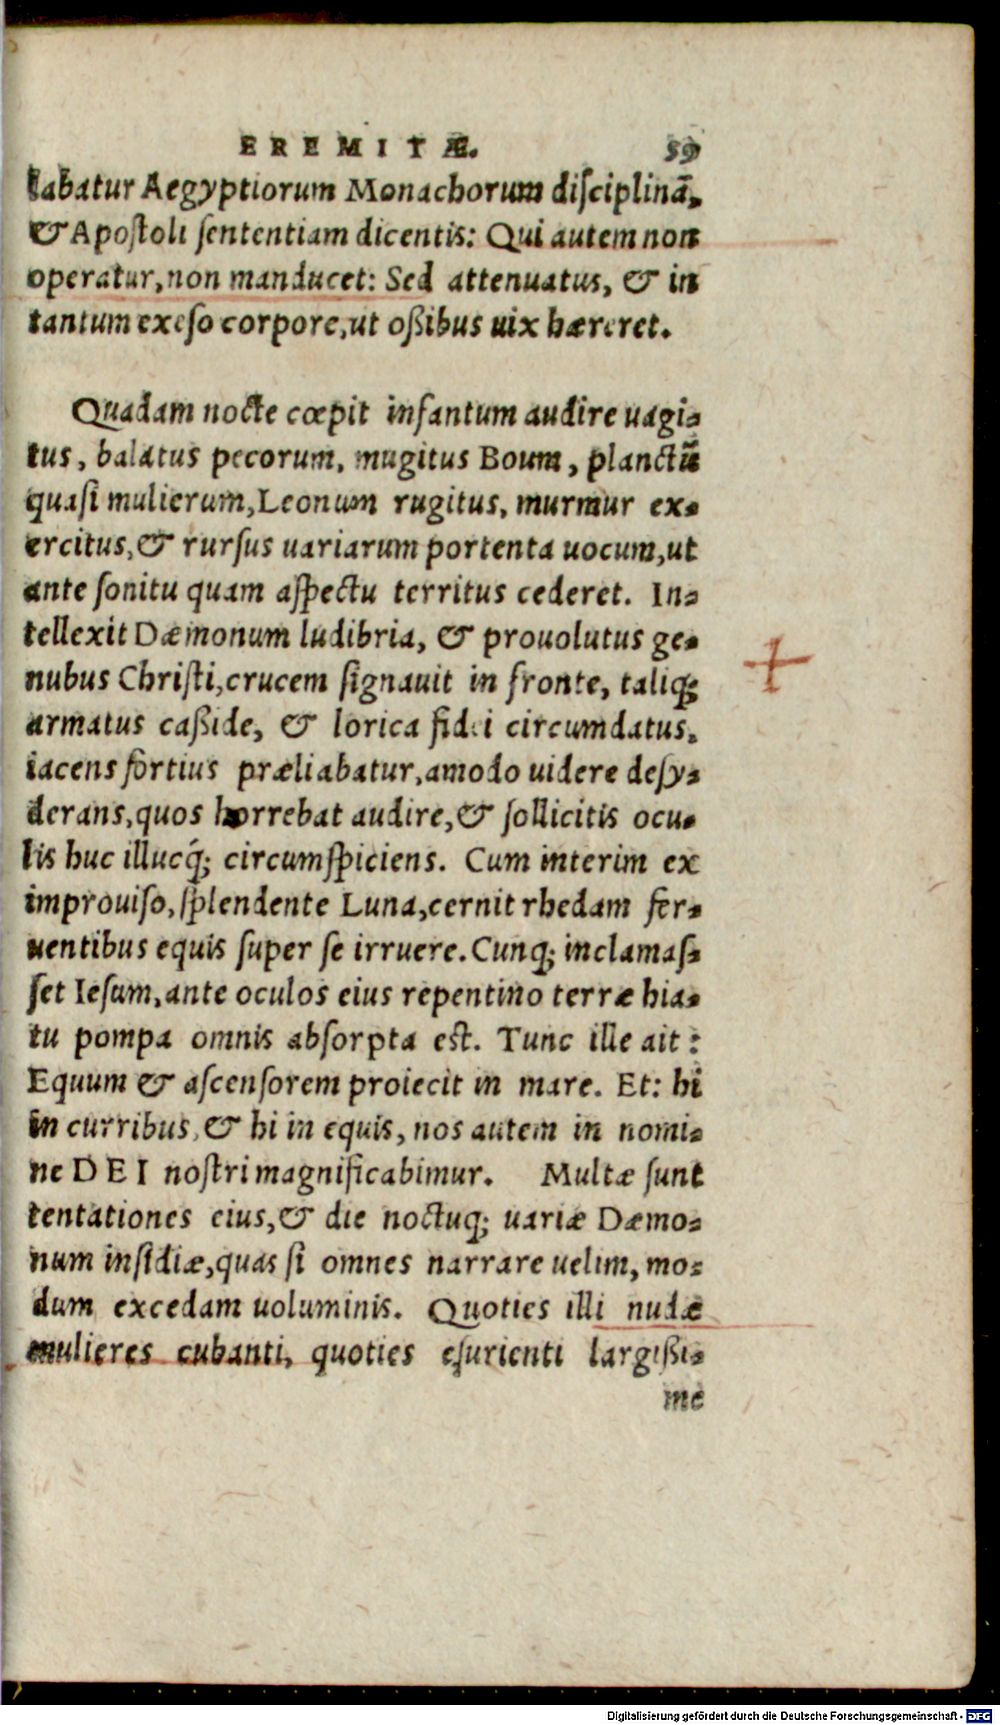 EREMITÆ. 59
tabatur Aegyptiorum Monachorum disciplinã,
& Apostoli sententiam dicentis: Qui autem non
operatur, non manducet: Sed attenuatus, & in
tantum exeso corpore, ut oßibus uix hæreret.
Quadam nocte cœpit infantum audire uagi=
tus, balatus pecorum, mugitus Boum, planctũ
quasi mulierum, Leonum rugitus, murmur ex=
ercitus, & rursus uariarum portenta uocum, ut
ante sonitu quam aspectu territus cederet. In=
tellexit Dæmonum ludibria, & prouolutus ge=
nubus Christi, crucem signauit in fronte, taliq;
armatus caßide, & lorica fidei circumdatus,
iacens fortius præliabatur, amodo uidere desy=
derans, quos horrebat audire, & sollicitis ocu=
lis huc illucq́; circumspiciens. Cum interim ex
improuiso, splendente Luna, cernit rhedam fer=
uentibus equis super se irruere. Cunq; inclamas=
set Iesum, ante oculos eius repentino terræ hia=
tu pompa omnis absorpta est. Tunc ille ait:
Equum & ascensorem proiecit in mare. Et: hi
in curribus, & hi in equis, nos autem in nomi=
ne DEI nostri magnificabimur. Multæ sunt
tentationes eius, & die noctuq; uariæ Dæmo=
num insidiæ, quas si omnes narrare uelim, mo=
dum excedam uoluminis. Quoties illi nudæ
mulieres cubanti, quoties esurienti largißi=
me
Digitalisierung gefördert durch die Deutsche Forschungsgemeinschaft - DFG